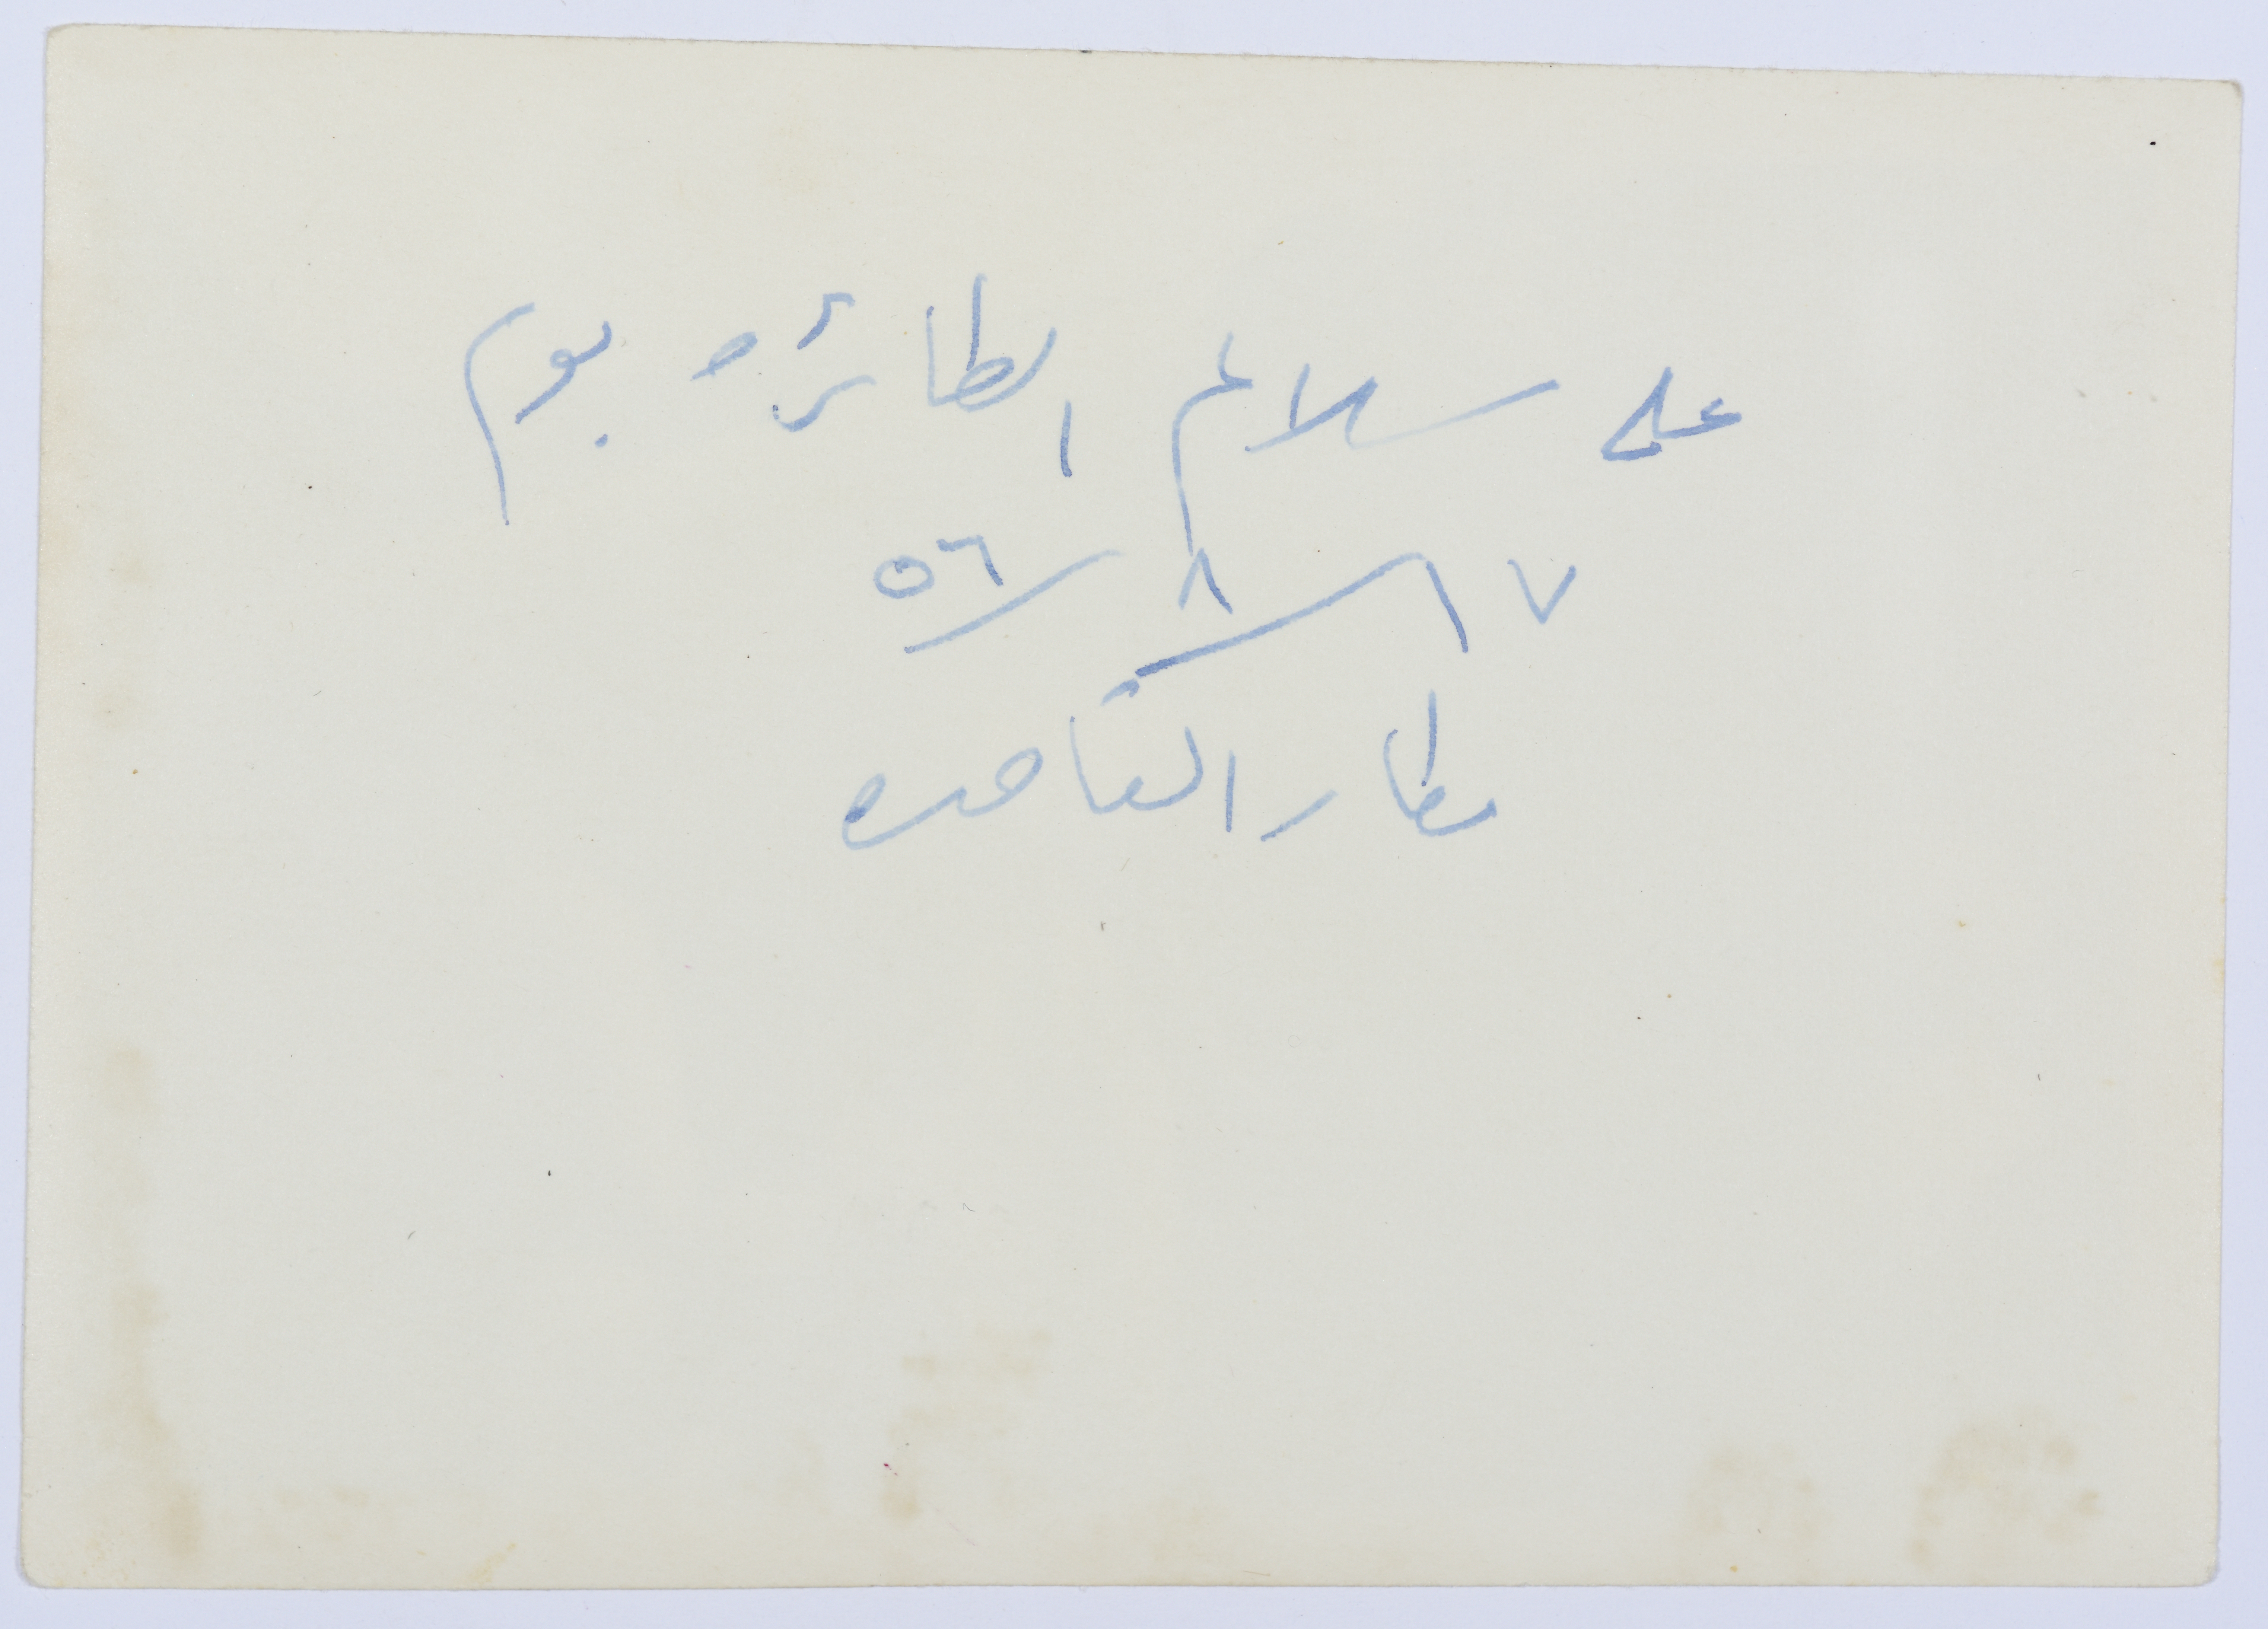 على سلالم الطائره يوم
١٧/٨/٥٦
مطار القاهره